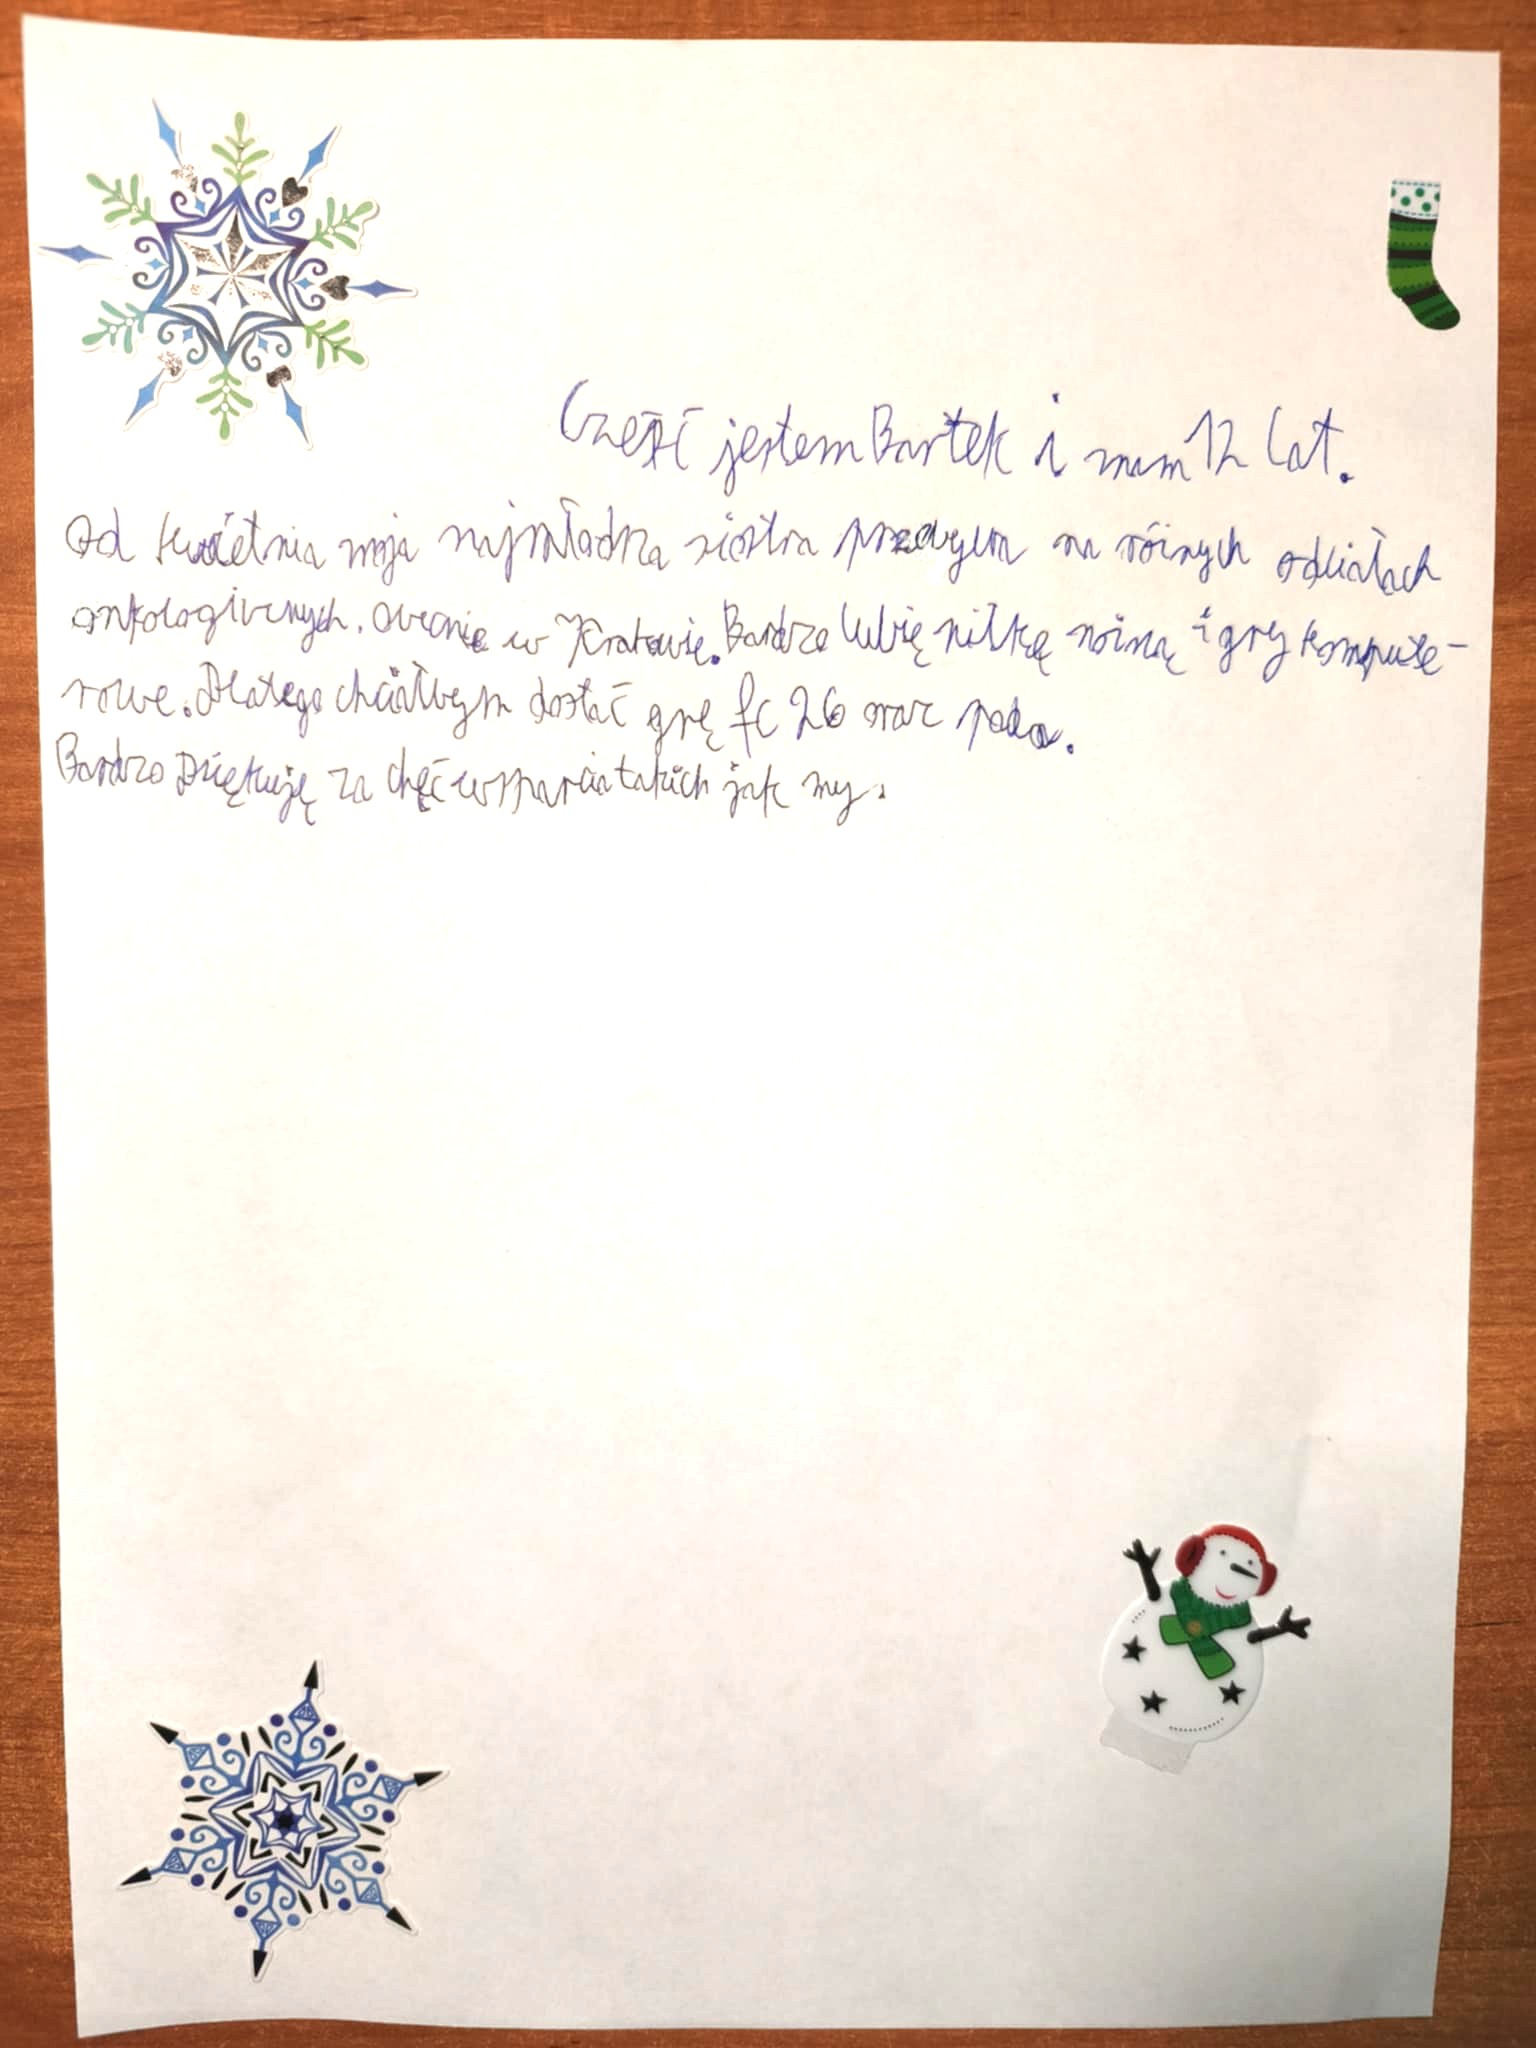 Cześć jestem Bartek i mam 12 lat.
Od kwietnia moja najmłodsza siostra przebywa na różnych oddziałach
onkologicznych. Obecnie w Krakowie. Bardzo lubię piłkę nożną i gry kompute-
rowe. Dlatego chciałbym dostać grę fc 26 oraz pada.
Bardzo Dziękuję za chęć wsparcia takich jak my.